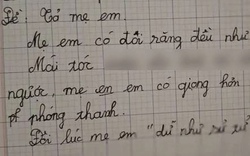 Đề: Tả mẹ em.
Mẹ em có đôi răng đều như
Mái tóc
người, mẹ em em có giọng hơn
pf phóng thanh.
Đôi lúc mẹ em "dữ như sư tử